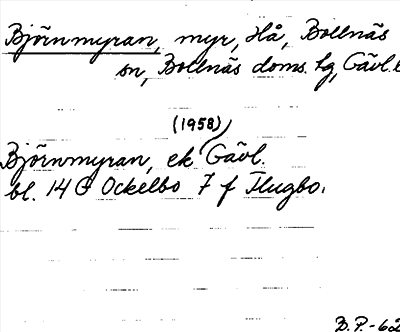 Björnmyran, myr, Hå, Bollnäs
sn, Bollnäs doms. hg, Gävl. l
(1958)
Björnmyran, ek Gävl.
bl. 14 G Ockelbo 7 f Flugbo.
B.P.-62